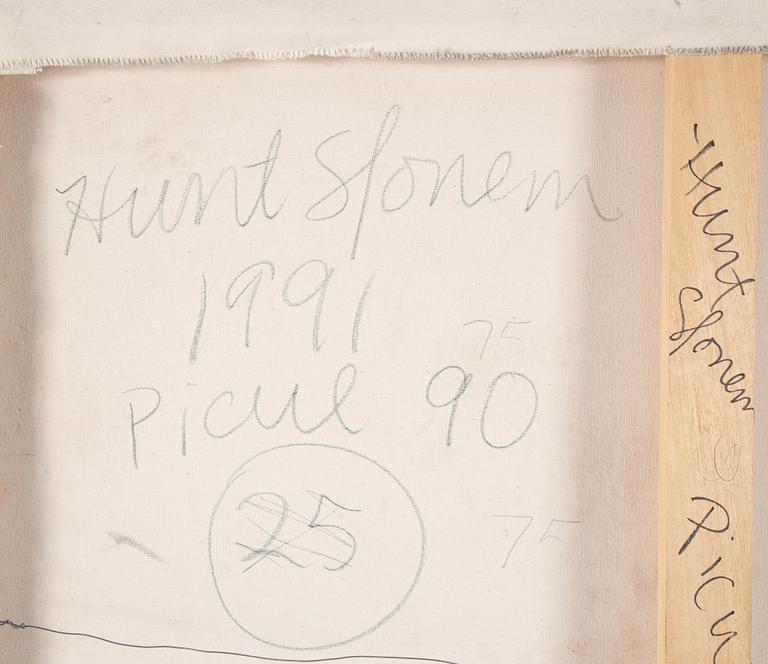 Hunt Slonem
1991
75
Picul 90
25
75
Hunt
Slonem
Picu